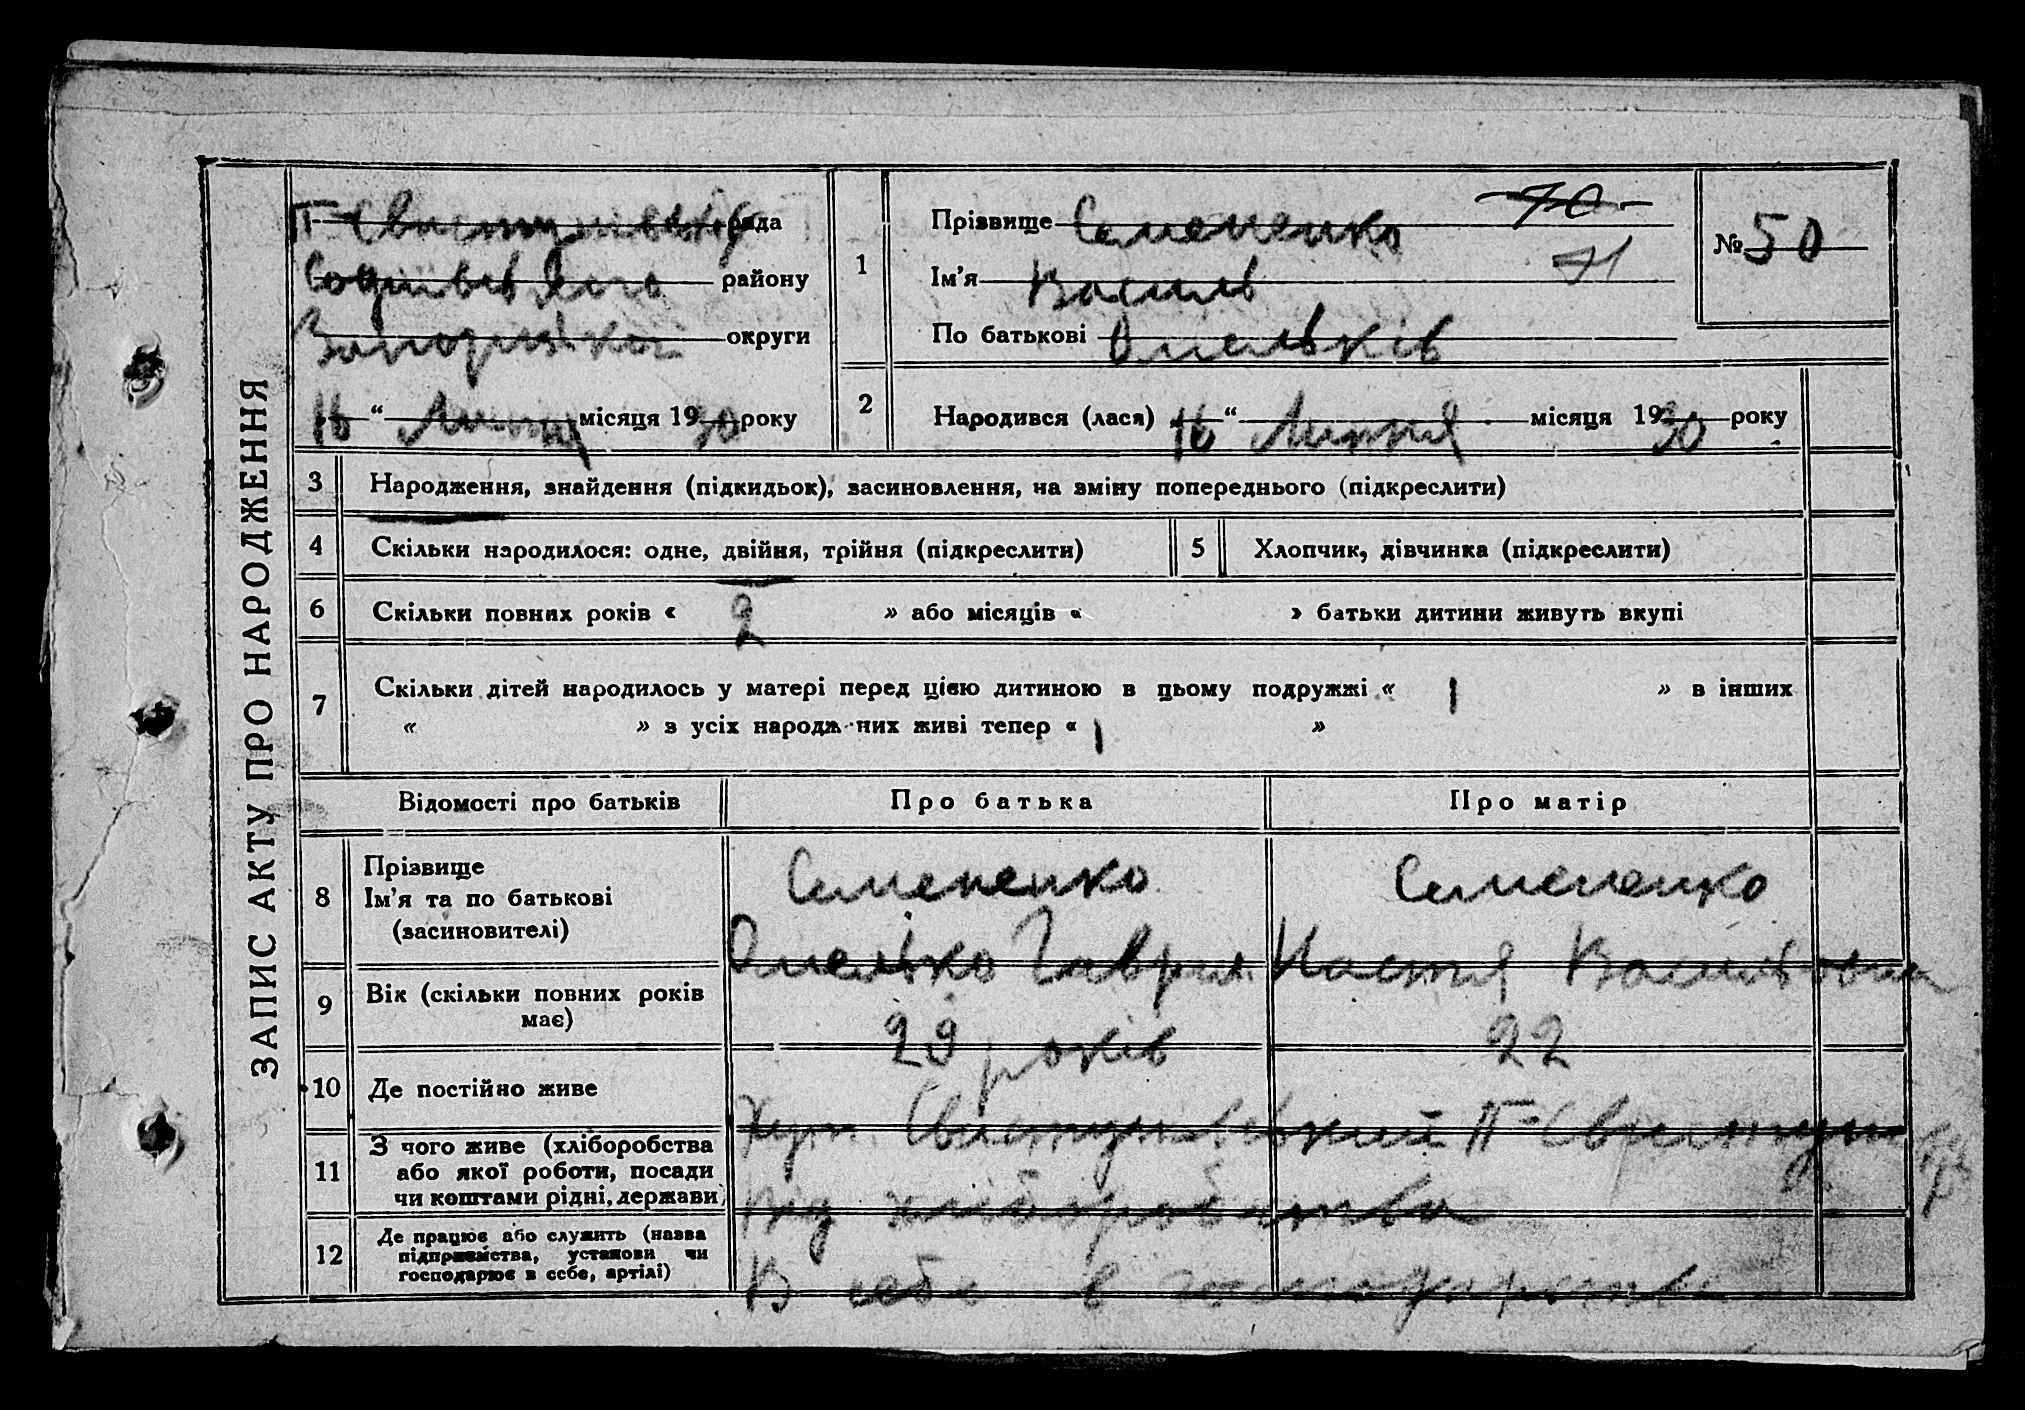 ЗАПИС АКТУ ПРО НАРОДЖЕННЯ
П-Свистунівська рада
району
Запоризької округи
16 “ Липня місяця 1930 року
1
Прізвище Семененко
70
71
Ім’я Василь
По батькові Омельків
№ 50
2
Народився (лася) 16 “ Липня місяця 1930 року
3 Народження, знайдення (підкидьок), засиновлення, на зміну попереднього (підкреслити)
4 Скільки народилося: одне, двійня, трійня (підкреслити)
5 Хлопчик, дівчинка (підкреслити)
6 Скільки повних років « 2 » або місяців « » батьки дитини живуть вкупі
7 Скільки дітей народилось у матері перед цією дитиною в цьому подружжі « 1 » в інших
« » з усіх народж них живі тепер « 1 »
Відомості про батьків Про батька Про матір
8 Прізвище
Ім’я та по батькові
(засиновителі)
Семененко
Омелько Гаврил.
Семененко
Настя Василівна
9 Вік (скільки повних років
має)
29 років
22
10 Де постійно живе
Хут. Свистунівський П-Свистун
11 З чого живе (хліборобства
або якої роботи, посади
чи коштами рідні, держави)
Від хліборобства
12 Де працює або служить (назва
підприємства, установи чи
господарює в себе, артілі)
В себе в господарстві